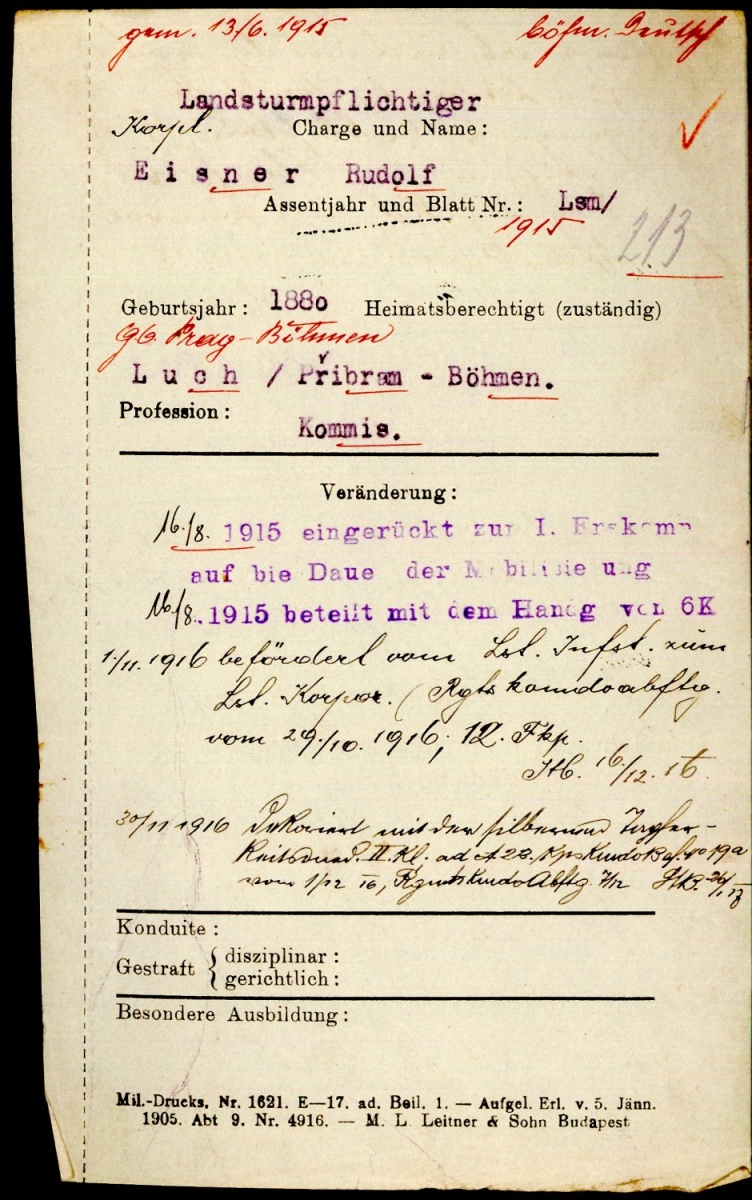 gem. 13/6. 1915 böhm. Deutsch
Landsturmpflichtiger
Korpl. Charge und Name:
Eisner Rudolf
Assentjahr und Blatt Nr.: Lsm/
1915 213
Geburtsjahr: 1880 Heimatsberechtigt (zuständig)
gb. Prag - Böhmen
Luch / Přibram - Böhmen.
Profession:
Kommis.
Veränderung:
16./8. 1915 eingerückt zur I. Erskomp
auf bie Daue der Mobilisie ung
16./8. 1915 beteilt mit dem Handg von 6K
1./11. 1916 befördert vom Lst. Infst. zum
Lst. Korpor. (Rgtskomdoabftg.
vom 29./10. 1916; 12. Fkp.
16./12. 16.
30/11 1916 Dekoriert mit der silbernen Tapfer-
keitsmed. II. Kl. ad A 23. Kpskmdo
vom 1/12 16, Rgmtskmdo Abftg. 7/12
Konduite:
Gestraft { disziplinar:
gerichtlich:
Besondere Ausbildung:
Mil.-Drucks. Nr. 1621. E—17. ad. Beil. 1. — Aufgel. Erl. v. 5. Jänn.
1905. Abt 9. Nr. 4916. — M. L. Leitner & Sohn Budapest